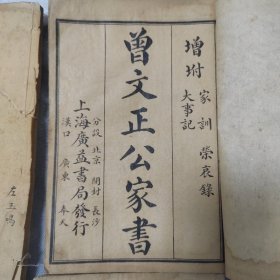 增坿 家訓 榮哀錄
大事記
曾文正公家書
分設 北京 開封 長沙
上海廣益書局發行
漢口 廣東 奉天